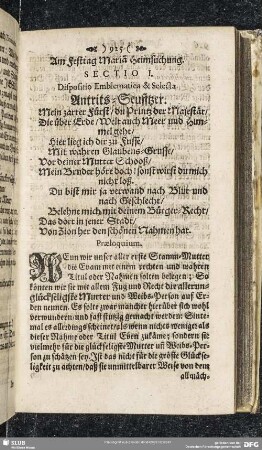 ) 925 (
Am Festtag Mariä Heimsuchung.
SECTIO I.
Dispositio Emblematica & Selecta
Antrits-Seufftzer.
Mein zarter Fürst/ du Printz der Majestät/
Die über Erde/ Welt auch Meer und Him-
mel gehe/
Hier lieg ich dir zu Fusse/
Mit wahren Glaubens-Grusse/
Vor deiner Mutter Schooß/
Mein Bruder höre doch! sonst wirst du mich
nicht loß.
Du bist mir ja verwand nach Blut und
nach Geschlecht/
Belehne mich mit deinem Bürger-Recht/
Das dort in jener Stadt/
Von Zion her den schönen Nahmen hat.
Præloquium.
WEnn wir unser aller erste Stamm-Mutter
die Evam mit einem rechten und wahren
Titul oder Nahmen solten belegen; So
könten wir sie mit allem Fug und Recht die allerun-
glückseligste Mutter und Weibs-Person auf Er-
den nennen. Es solte zwar mancher hierüber sich wohl
verwundern/ und fast stutzig gemacht werden: Sinte-
mal es allerdings scheinet/ als wenn nichts weniger als
dieser Nahme oder Titul Even zukäme; sondern sie
vielmehr für die glückseligste Mutter uñ Weibs-Per-
son zu schätzen sey. Ist das nicht für die gröste Glückse-
ligkeit zu achten/ daß sie unmittelbarer Weise von dem
allmäch-
SLUB
DFG